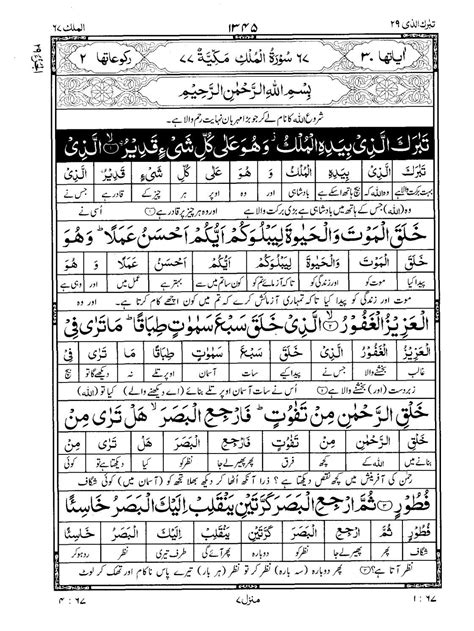 تبٰرک الذی ۲۹
۱۳۴۵
الملک ۶۷
اٰیاتھا ۳۰
۶۷ سُوْرَۃُ الْمُلْكِ مَكِّيَّةٌ ۷۷
رکوعاتھا ۲
بِسْمِ اللّٰهِ الرَّحْمٰنِ الرَّحِيْمِ
شروع اللہ کا نام لے کر جو بڑا مہربان نہایت رحم والا ہے۔
تَبٰرَكَ الَّذِيْ بِيَدِهِ الْمُلْكُ وَهُوَ عَلٰى كُلِّ شَيْءٍ قَدِيْرُ ۙ﴿۱﴾ الَّذِيْ
تَبٰرَكَ الَّذِيْ بِيَدِهِ الْمُلْكُ وَ هُوَ عَلٰى كُلِّ شَيْءٍ قَدِيْرُ الَّذِيْ
بہت برکت والا ہے وہ اللہ کہ ہاتھ اسکے ہے بادشاہی اور وہ اوپر ہر چیز کے قادر ہے جس نے
وہ (اللہ) جس کے ہاتھ میں بادشاہی ہے بڑی برکت والا ہے اور وہ ہر چیز پر قادر ہے ۱ اُسی نے
خَلَقَ الْمَوْتَ وَالْحَيٰوةَ لِيَبْلُوَكُمْ اَيُّكُمْ اَحْسَنُ عَمَلًا ؕ وَهُوَ
خَلَقَ الْمَوْتَ وَالْحَيٰوةَ لِيَبْلُوَكُمْ اَيُّكُمْ اَحْسَنُ عَمَلًا وَ هُوَ
پیدا کیا موت کو اور زندگی کو تاکہ آزمائے تم کو کون سا تم میں سے بہتر ہے عمل میں اور وہی ہے
موت اور زندگی کو پیدا کیا تاکہ تمہاری آزمائش کرے کہ تم میں کون اچھے کام کرتا ہے۔ اور وہ
الْعَزِيْزُ الْغَفُوْرُ ۙ﴿۲﴾ الَّذِيْ خَلَقَ سَبْعَ سَمٰوٰتٍ طِبَاقًا ؕ مَا تَرٰى فِيْ
الْعَزِيْزُ الْغَفُوْرُ الَّذِيْ خَلَقَ سَبْعَ سَمٰوٰتٍ طِبَاقًا مَا تَرٰى فِيْ
غالب بخشنے والا جس نے پیدا کیے سات آسمان اوپر تلے نہ دیکھے گا تو بیچ
زبردست (اور) بخشنے والا ہے ۲ اُس نے سات آسمان اوپر تلے بنائے (اے دیکھنے والے) کیا تو (اللہ)
خَلْقِ الرَّحْمٰنِ مِنْ تَفٰوُتٍ ؕ فَارْجِعِ الْبَصَرَ ۙ هَلْ تَرٰى مِنْ
خَلْقِ الرَّحْمٰنِ مِنْ تَفٰوُتٍ فَارْجِعِ الْبَصَرَ هَلْ تَرٰى مِنْ
بنانے میں اللہ کے کچھ فرق پھر پھیر لے جا نظر کو کیا دیکھتا ہے تو کوئی
رحمٰن کی آفرینش میں کچھ نقص دیکھتا ہے؟ ذرا آنکھ اٹھا کر دیکھ بھلا تجھ کو (آسمان میں) کوئی شگاف
فُطُوْرٍ ﴿۳﴾ ثُمَّ ارْجِعِ الْبَصَرَ كَرَّتَيْنِ يَنْقَلِبْ اِلَيْكَ الْبَصَرُ خَاسِئًا
فُطُوْرٍ ثُمَّ ارْجِعِ الْبَصَرَ كَرَّتَيْنِ يَنْقَلِبْ اِلَيْكَ الْبَصَرُ خَاسِئًا
شگاف پھر پھیر لے جا نظر کو دوبارہ پھر آئے گی طرف تیری نظر رد ہو کر
نظر آتا ہے؟ ۳ پھر دوبارہ (سہ بارہ) نظر کر تو نظر (ہر بار) تیرے پاس ناکام اور تھک کر لوٹ
۶۷ : ۱
منزل ۷
۶۷ : ۴